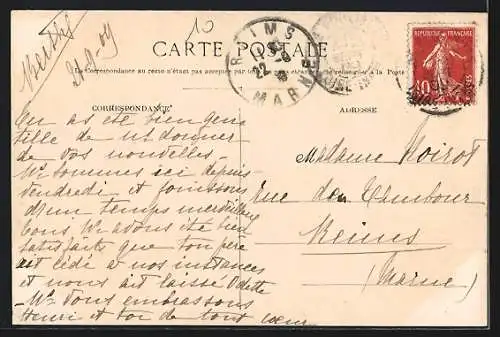 10
Berthe
21.9.09
CARTE POSTALE
La Correspondance au recto n'était pas acceptée par
à la Poste
REIMS
MARNE
RÉPUBLIQUE FRANÇAISE
10
CORRESPONDANCE
ADRESSE
Tu as été bien gen
tille de ns donner
de vos nouvelles.
Ns sommes ici depuis
vendredi et jouissons
d'un temps merveilleux
Tous. Ns avons été bien
satisfaits que ton père
ait cédé à nos instances
et nous ait laissé Odette
Ns vous embrassons
Henri et toi de tout cœur
Madame Noirot
Rue du Tambour
Reims
(Marne)